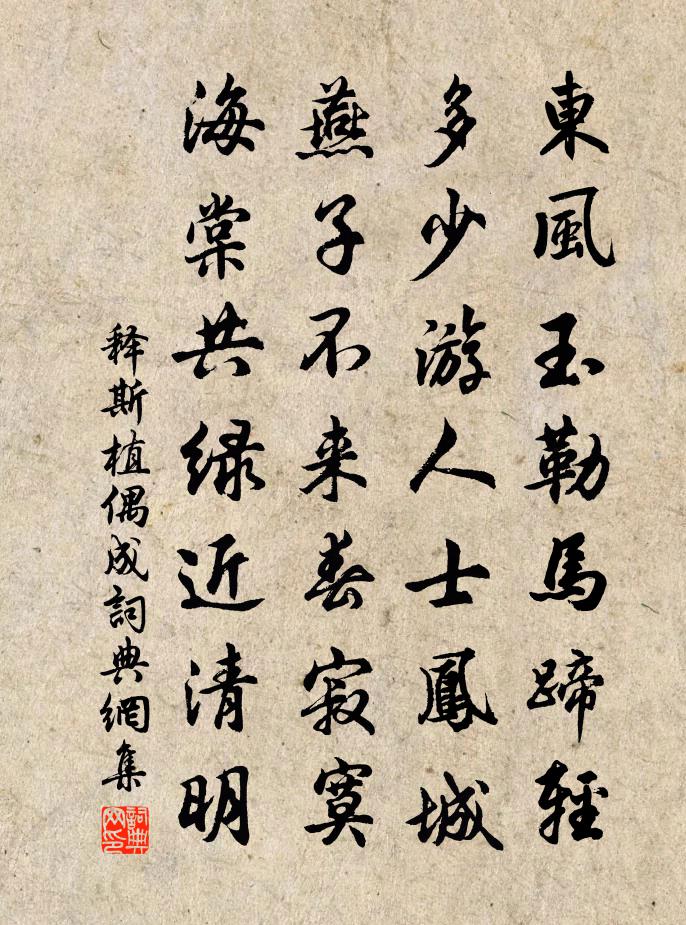 東風玉勒馬蹄輕
多少游人士鳳城
燕子不来春寂寞
海棠共緑近清明
释斯植偶成詞典網集
詞典网印